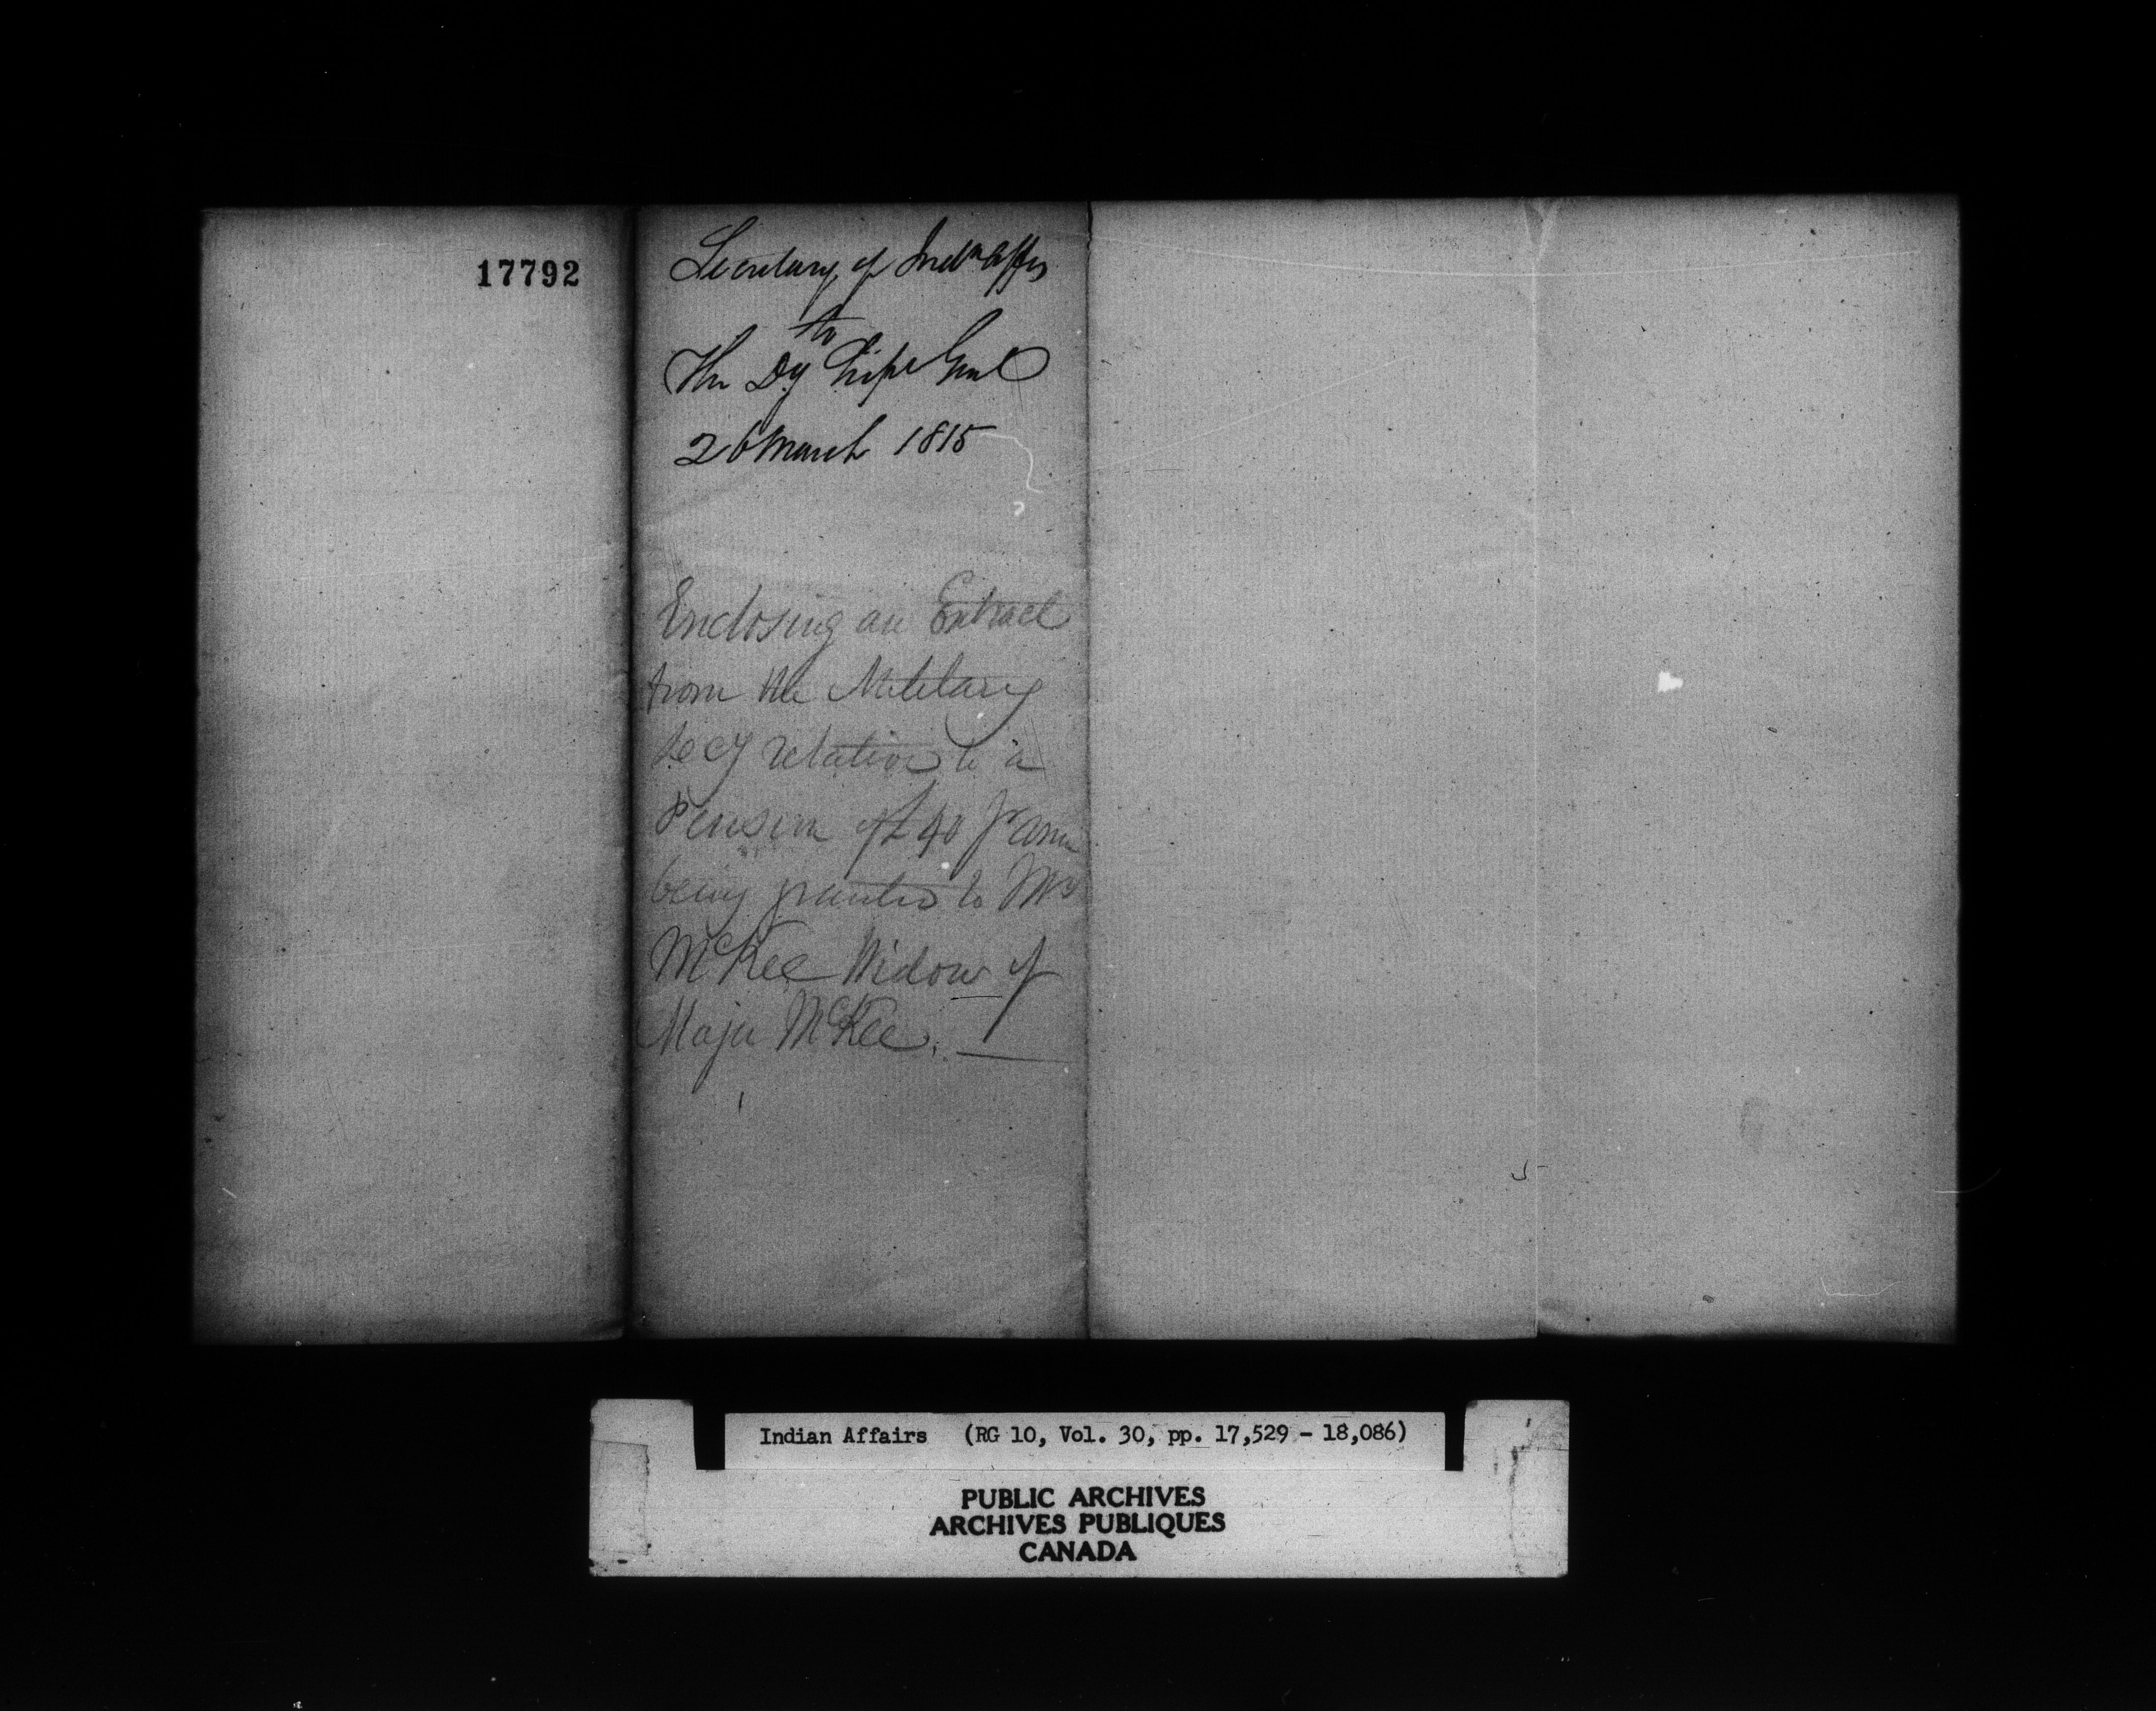 17792
Secretary of Indn Affrs
to
The Dy Supr Genl
26 March 1815
Enclosing an Extract
from the Military
Secy relative to a
Pension of £40 pr Annm
being granted to Mrs
McKee Widow of
Major McKee.
Indian Affairs (RG 10, Vol. 30, pp. 17,529 - 18,086)
PUBLIC ARCHIVES
ARCHIVES PUBLIQUES
CANADA